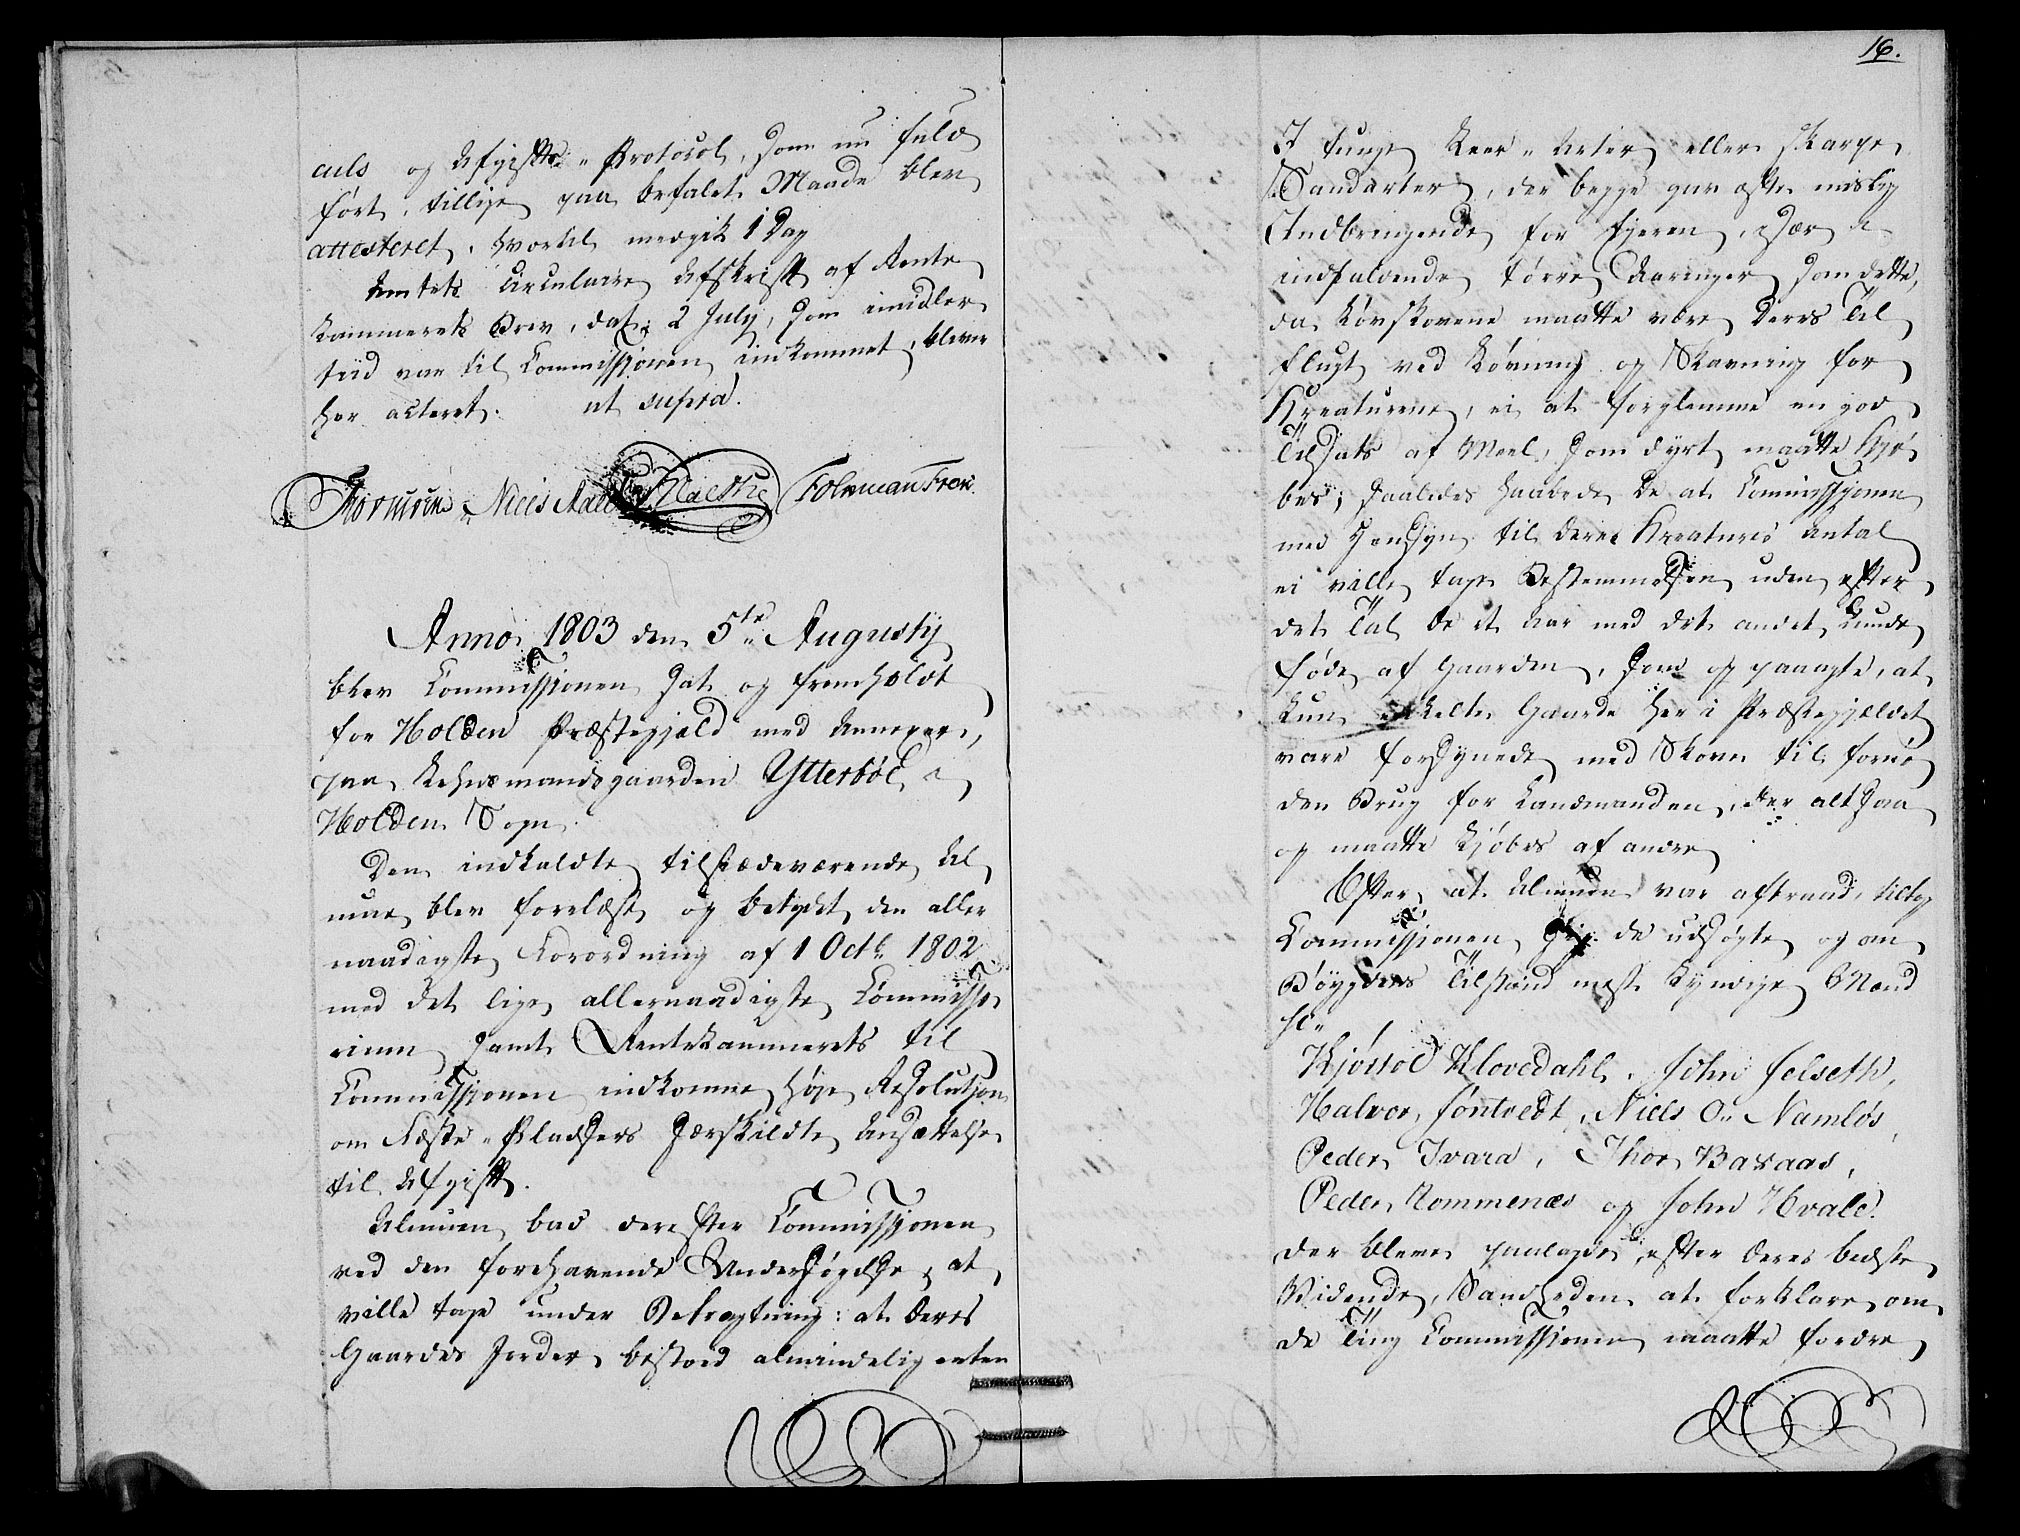 culs og Afgifts Protocol, som nu fuld
ført, tillige paa befalet Maade blev
attesteret, hvortil medgik 1 Dag
Amtets Circulaire Afskrift af Rente
Kammerets Brev, dat. 2 July, som imidler
tiid var til Commissjonen indkommet, bleve
her acteret. ut supra.
Niels Aall
Anno 1803 den 5te Augustij
blev Commissjonen sat og fremholdt
for Holden Præstegjæld med Annexer,
paa Lehnsmandsgaarden Ytterböl i
Holden Sogn.
Den indkaldte tilstædeværende Al
mue blev forelæst og betydet den aller
naadigste Forordning af 1 Octb. 1802
med det lige allernaadigste Commisso
rium samt Rentekammerets til
Commissjonen indkomne høye Resolutjon
om Fæste-Pladsers særskildte Ansættelse
til Afgift.
Almuen bad derefter Commissjonen
ved den forehavende Undersøgelse, at
ville tage under Betragtning: at deres
Gaardes Jorder bestoed almindelig enten
16.
I tunge Leer-Arter eller skarpe
Sandarter, der begge gav ofte mislig
Indbringende for Eyeren, især i
indfaldende tørre Aaringer som dette,
da Løvskovene maatte være deres Til
flugt ved Løvning og Skavning for
Kreaturene, ei at forglemme en god
Tilsats af Meel, som dyrt maatte kjø
bes; saaledes haabede de at Commissjonen
med Hensyn til deres Kreaturs Antal
ei ville tage Bestemmelsen uden efter
det Tal de et Aar med det andet kunde
føde af Gaarden, som og paaagte, at
kun enkelte Gaarde her i Præstegjældet
vare forsynede med Skov til fornø
den Brug for Landmanden, der altsaa
og maatte kjøbes af andre
Efter at Almuen var aftraad, tiltog
Commissjonen sig de udsøgte og om
Bøygdens Tilstand mest kyndige Mænd
Kjøstol Klovedahl, John Jelseth,
Halvor Søntvedt, Niels O. Namløs,
Peder Ivara, Thor Baxaas,
Peder Nommenæs og John Hvale.
der bleve paalagde, efter deres bedste
Vidende, Sandheden at forklare om
de Ting Commissjonen maatte fordre